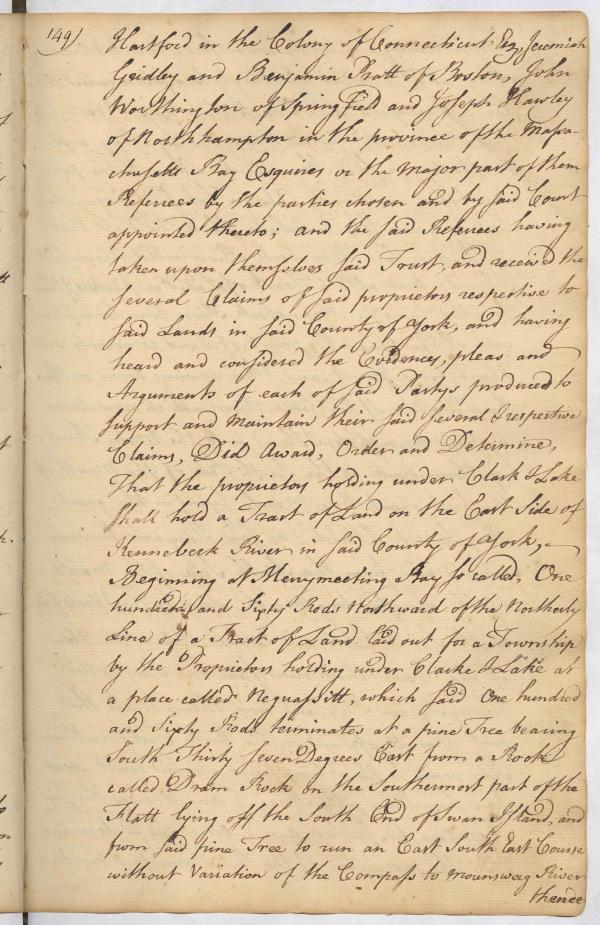 149)
Hartford in the Colony of Connecticut Esqr, Jeremiah
Gridley and Benjamin Pratt of Boston, John
Worthington of Springfield and Joseph Hawley
of Northhampton in the province of the Massa-
chusetts Bay Esquires or the Major part of them
Referrees by the parties chosen and by said Court
appointed thereto; and the said Referees having
taken upon themselves said Trust, and received the
several Claims of said proprietors respective to
said Lands in said County of York, and having
heard and considered the Evidences, pleas and
Arguments of each of said Partys produced to
support and Maintain their said several & respective
Claims, Did Award, Order and Determine,
That the proprietors holding under Clark & Lake
shall hold a Tract of Land on the East Side of
Kennebeck River in said County of York,
Beginning at Merrymeeting Bay so called, One
hundred and Sixty Rods Northward of the Northerly
Line of a Tract of Land laid out for a Township
by the Proprietors holding under Clarke & Lake at
a place called Neguassitt, which said One hundred
and Sixty Rods terminates at a pine Tree bearing
South Thirty seven Degrees East from a Rock
called Dram Rock on the Southermost part of the
Flatt lying off the South End of Swan Island, and
from said pine Tree to run an East South East Course
without Variation of the Compass to Mounsweeg River
thence